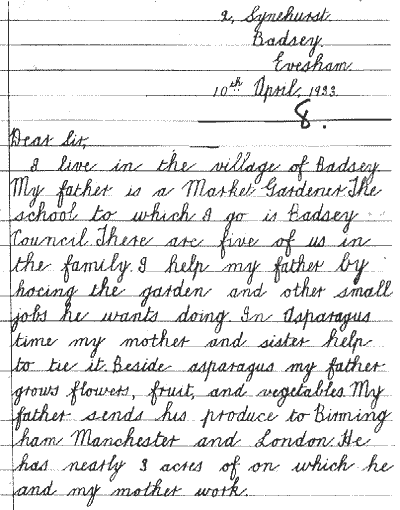 2, Synehurst
Badsey
Evesham
10th April, 1933
8.
Dear Sir,
I live in the village of Badsey
My father is a Market Gardener. The
school to which I go is Badsey
Council. There are five of us in
the family. I help my father by
hoeing the garden and other small
jobs he wants doing. In Asparagus
time my mother and sister help
to tie it. Beside asparagus my father
grows flowers, fruit, and vegetables. My
father sends his produce to Birming
ham Manchester and London. He
has nearly 3 acres of on which he
and my mother work.